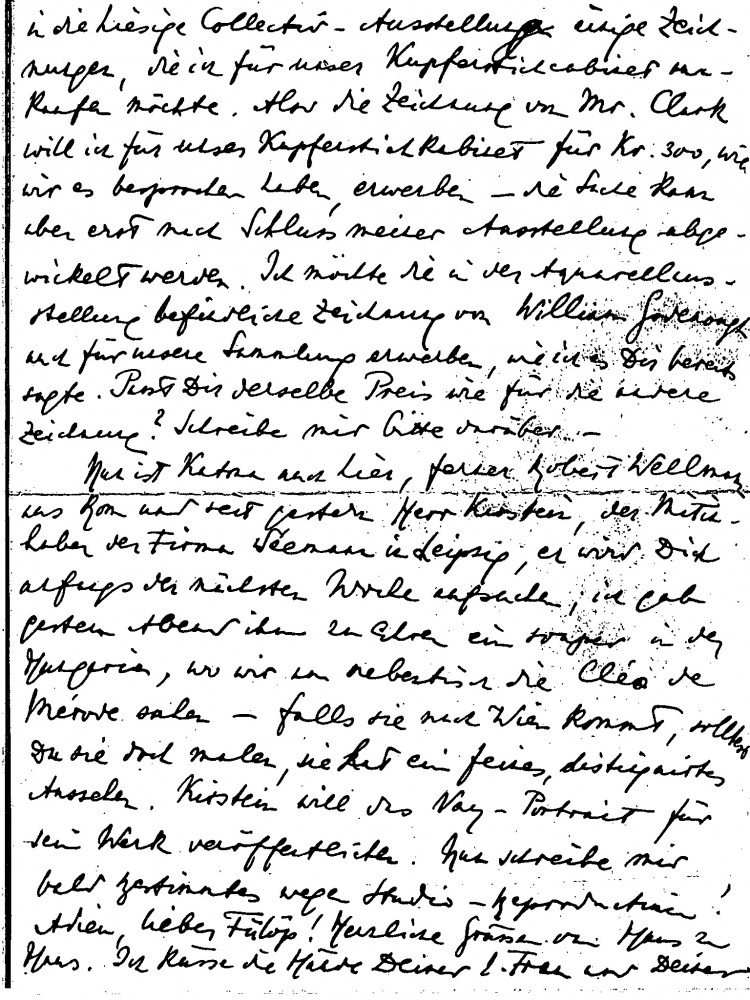 in die hiesige Collectiv-Ausstellung einige Zeich-
nungen, die ich für unser Kupferstichcabinet an-
kaufen möchte. Also die Zeichnung von Mr. Clark
will ich für unser Kupferstichkabinet für Kr. 300, wie
wir es besprochen haben, erwerben – die Sache kann
aber erst nach Schluss meiner Ausstellung abge-
wickelt werden. Ich möchte die in der Aquarellaus-
stellung befindliche Zeichnung von William
auch für unsere Sammlung erwerben, wie ich es Dir bereits
sagte. Passt Dir derselbe Preis wie für die andere
Zeichnung? Schreibe mir bitte darüber. –
Nun ist Katona auch hier, ferner Robert Wellmann
aus Rom und seit gestern Herr Kirstein, der Mitin-
haber der Firma Seemann in Leipzig, er wird Dich
anfangs der nächsten Woche aufsuchen, ich gab
gestern Abend ihm zu Ehren ein souper in der
Hungaria, wo wir am Nebentisch die Cléo de
Mérode sahen – falls sie nach Wien kommt, solltest
Du sie doch malen, sie hat ein feines, distinguirtes
Aussehen. Kirstein will das Vay-Portrait für
sein Werk veröffentlichen. Nun schreibe mir
bald bestimmtes wegen Studio-Reproductionen!
Adieu, lieber Fülöp! Herzliche Grüsse von Haus zu
Haus. Ich küsse die Hände Deiner l. Frau und Deiner